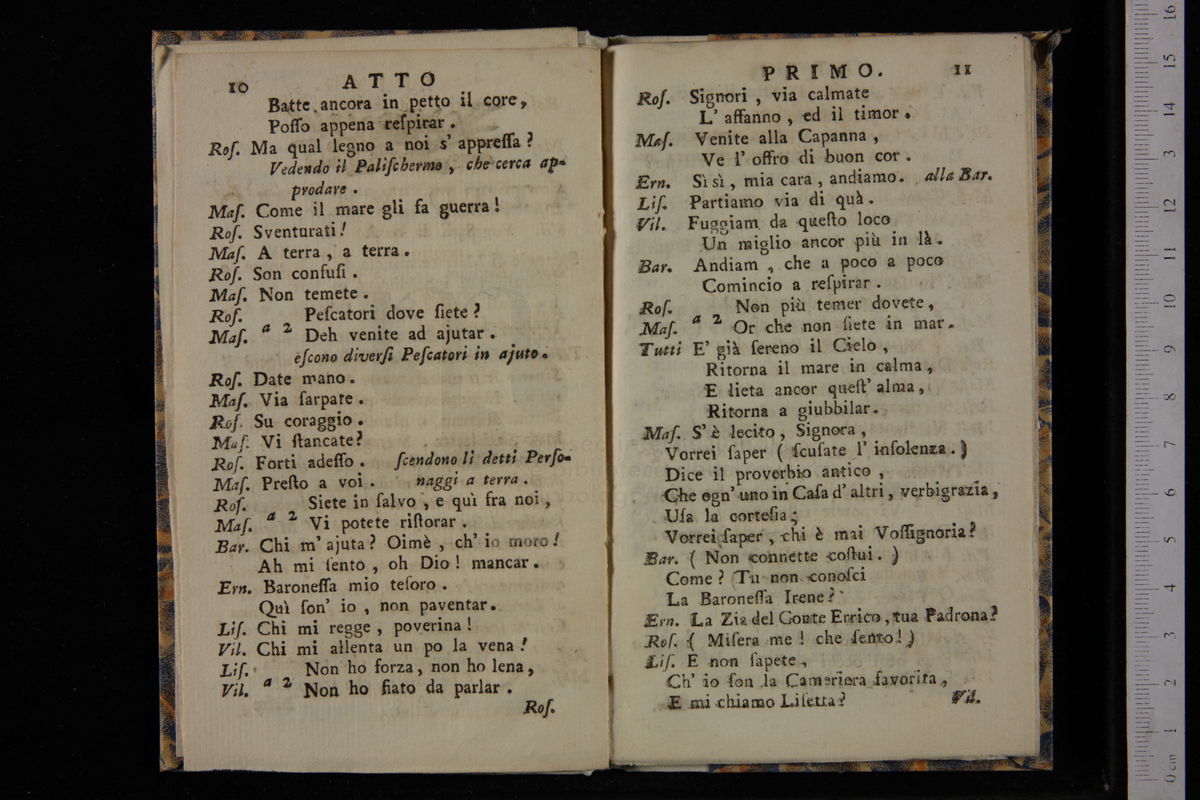 10 ATTO
Batte ancora in petto il core,
Poſſo appena reſpirar.
Roſ. Ma qual legno a noi s' appreſſa?
Vedendo il Paliſchermo, che cerca ap-
prodare.
Maſ. Come il mare gli fa guerra!
Roſ. Sventurati!
Maſ. A terra, a terra.
Roſ. Son confuſi.
Maſ. Non temete.
Roſ. Peſcatori dove ſiete?
Maſ. a 2 Deh venite ad ajutar.
eſcono diverſi Peſcatori in ajuto.
Roſ. Date mano.
Maſ. Via ſarpate.
Roſ. Su coraggio.
Maſ. Vi ſtancate?
Roſ. Forti adeſſo. ſcendono li detti Perſo-
Maſ. Preſto a voi. naggi a terra.
Roſ. Siete in ſalvo, e quì fra noi,
Maſ. a 2 Vi potete riſtorar.
Bar. Chi m' ajuta? Oimè, ch' io moro!
Ah mi ſento, oh Dio! mancar.
Ern. Baroneſſa mio teſoro.
Quì ſon' io, non paventar.
Liſ. Chi mi regge, poverina!
Vil. Chi mi allenta un po la vena!
Liſ. Non ho forza, non ho lena,
Vil. a 2 Non ho fiato da parlar.
Roſ.
PRIMO. 11
Roſ. Signori, via calmate
L' affanno, ed il timor.
Maſ. Venite alla Capanna,
Ve l' offro di buon cor.
Ern. Sì sì, mia cara, andiamo. alla Bar.
Liſ. Partiamo via di quà.
Vil. Fuggiam da queſto loco
Un miglio ancor più in là.
Bar. Andiam, che a poco a poco
Comincio a reſpirar.
Roſ. Non più temer dovete,
Maſ. a 2 Or che non ſiete in mar.
Tutti E' già ſereno il Cielo,
Ritorna il mare in calma,
E lieta ancor queſt' alma,
Ritorna a giubbilar.
Maſ. S' è lecito, Signora,
Vorrei ſaper (ſcuſate l' inſolenza.)
Dice il proverbio antico,
Che ogn' uno in Caſa d' altri, verbigrazia,
Uſa la corteſia;
Vorrei ſaper, chi è mai Voſſignoria?
Bar. (Non connette coſtui.)
Come? Tu non conoſci
La Baroneſſa Irene?
Ern. La Zia del Conte Errico, tua Padrona?
Roſ. (Miſera me! che ſento!)
Liſ. E non ſapete,
Ch' io ſon la Cameriera favorita,
E mi chiamo Liſetta?
Vil.